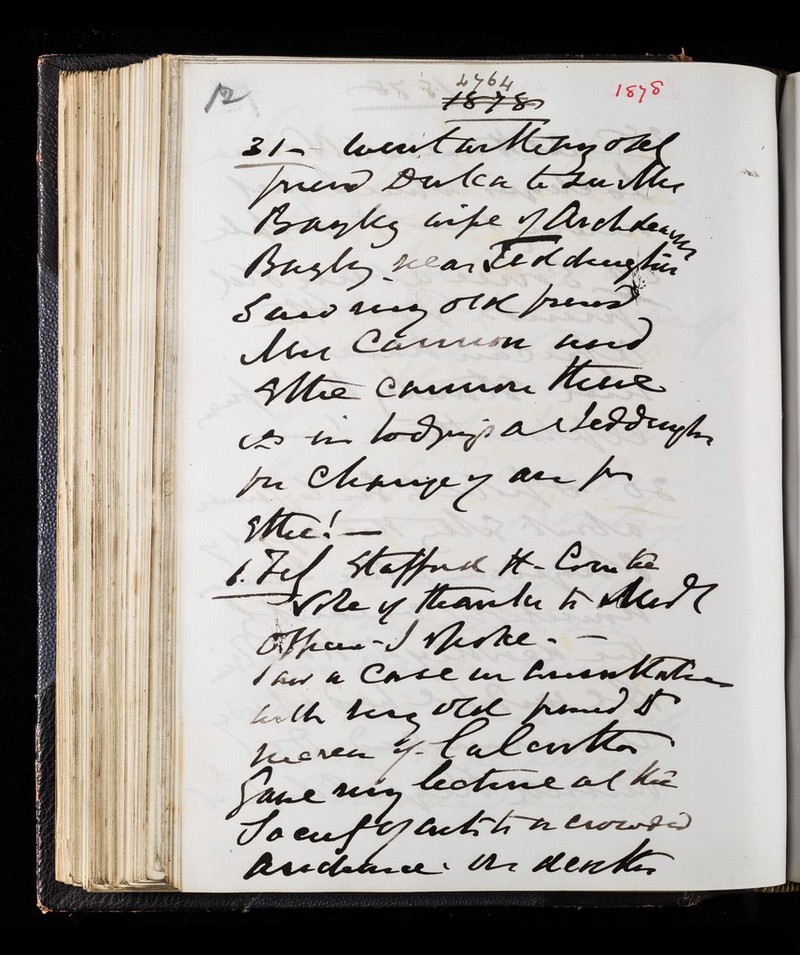 12
4764
1878
1878
31 - went with my old
friend Duka to see Mrs
wife of Archdeacon
near Teddington
Saw my old friend
Mrs Cannon and
Ettie Cannon there
in lodgings at Teddington
for change of air for
Ettie! —
6. Feb Stafford H - Comtee
Vote of thanks to Medl
Officer - I spoke - —
Saw a case in consultation
with my old friend Dr
of Calcutta
Gave my lecture at the
Society of arts to a crowded
audience. on